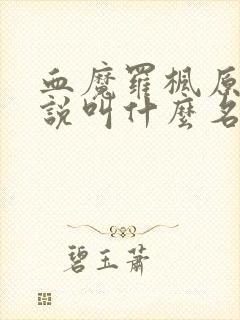 血魔羅楓原
說叫什麼名
碧玉蕭